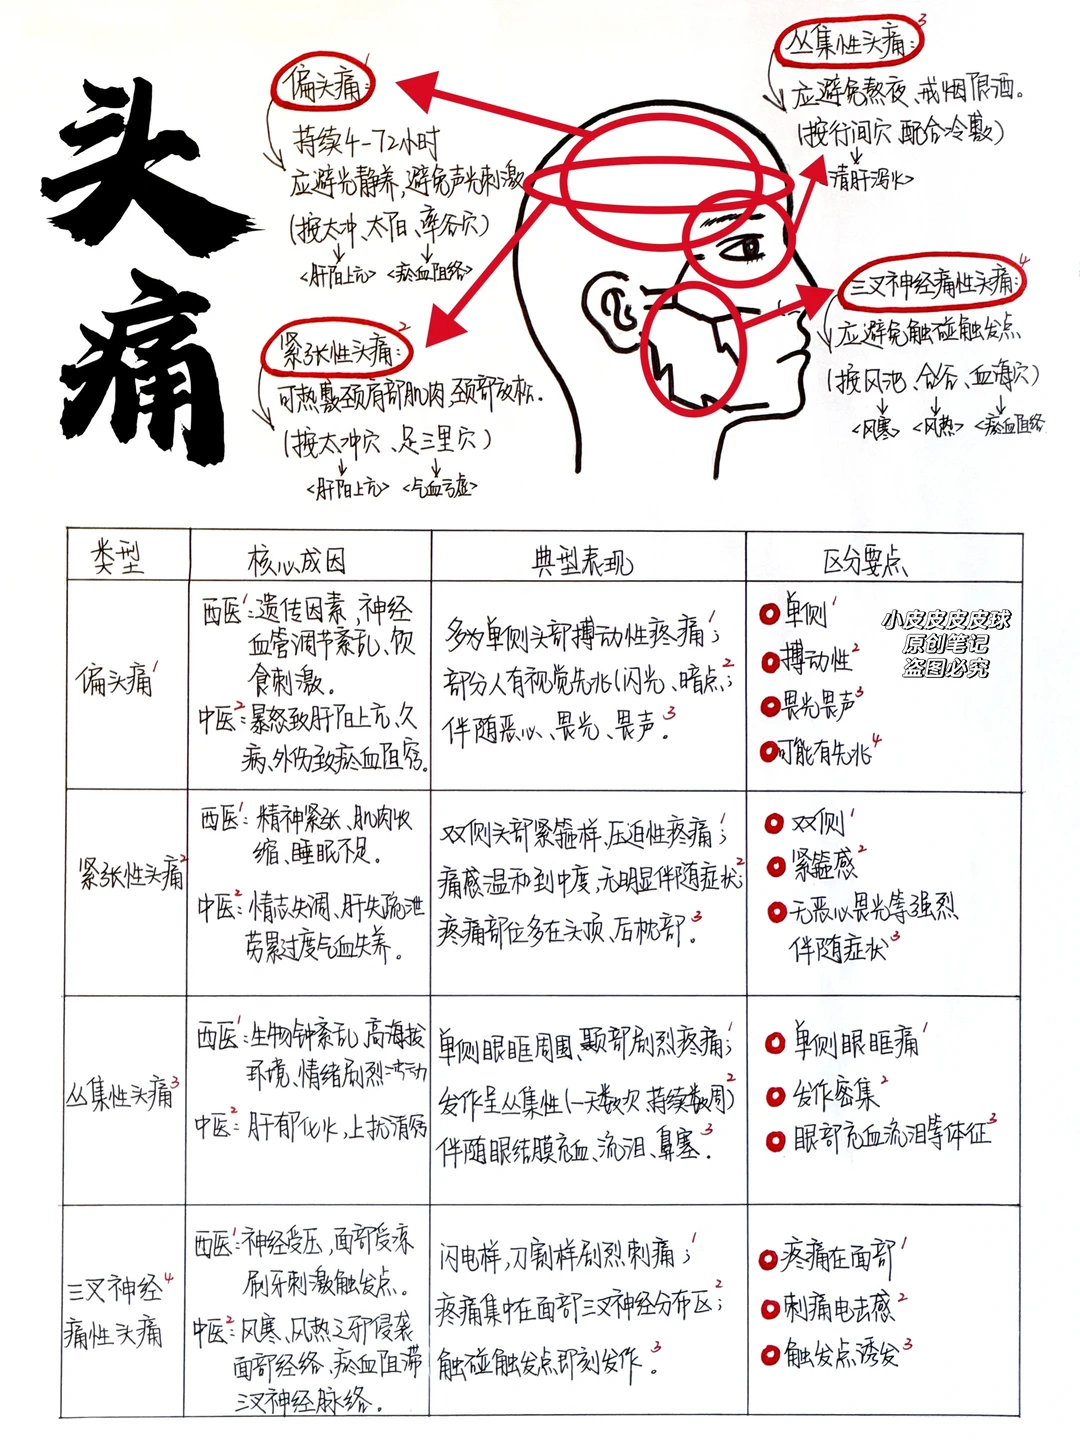 头痛
偏头痛：1
持续4-72小时
应避光静养，避免声光刺激
(按太冲、太阳、率谷穴)
<肝阳上亢> <瘀血阻络>
紧张性头痛：2
可热敷颈肩部肌肉，颈部放松．
(按太冲穴、足三里穴)
<肝阳上亢> <气血亏虚>
丛集性头痛：3
应避免熬夜、戒烟限酒。
(按行间穴 配合冷敷)
清肝泻火
三叉神经痛性头痛：4
应避免触碰触发点
(按风池、合谷、血海穴)
<风寒> <风热> <瘀血阻络>
类型 核心成因 典型表现 区分要点
偏头痛1
西医1：遗传因素，神经
血管调节紊乱、饮
食刺激。
中医2：暴怒致肝阳上亢、久
病、外伤致瘀血阻窍。
多为单侧头部搏动性疼痛1；
部分人有视觉先兆(闪光、暗点2；
伴随恶心、畏光、畏声3。
单侧1
搏动性2
畏光畏声3
可能有先兆4
小皮皮皮皮球
原创笔记
盗图必究
紧张性头痛2
西医1：精神紧张、肌肉收
缩、睡眠不足。
中医2：情志失调、肝失疏泄
劳累过度气血失养。
双侧头部紧箍样，压迫性疼痛1；
痛感温和到中度，无明显伴随症状2；
疼痛部位多在头顶、后枕部3。
双侧1
紧箍感2
无恶心畏光等强烈
伴随症状3
丛集性头痛3
西医1：生物钟紊乱，高海拔
环境、情绪剧烈波动
中医2：肝郁化火，上扰清窍
单侧眼眶周围、颞部剧烈疼痛1；
发作呈丛集性(一天数次、持续数周)2
伴随眼结膜充血、流泪、鼻塞3．
单侧眼眶痛1
发作密集2
眼部充血流泪等体征3
三叉神经4
痛性头痛
西医1：神经受压，面部受凉
刷牙刺激触发点。
中医2：风寒、风热之邪侵袭
面部经络、瘀血阻滞
三叉神经脉络。
闪电样，刀割样剧烈刺痛1；
疼痛集中在面部三叉神经分布区2；
触碰触发点即刻发作3。
疼痛在面部1
刺痛电击感2
触发点诱发3